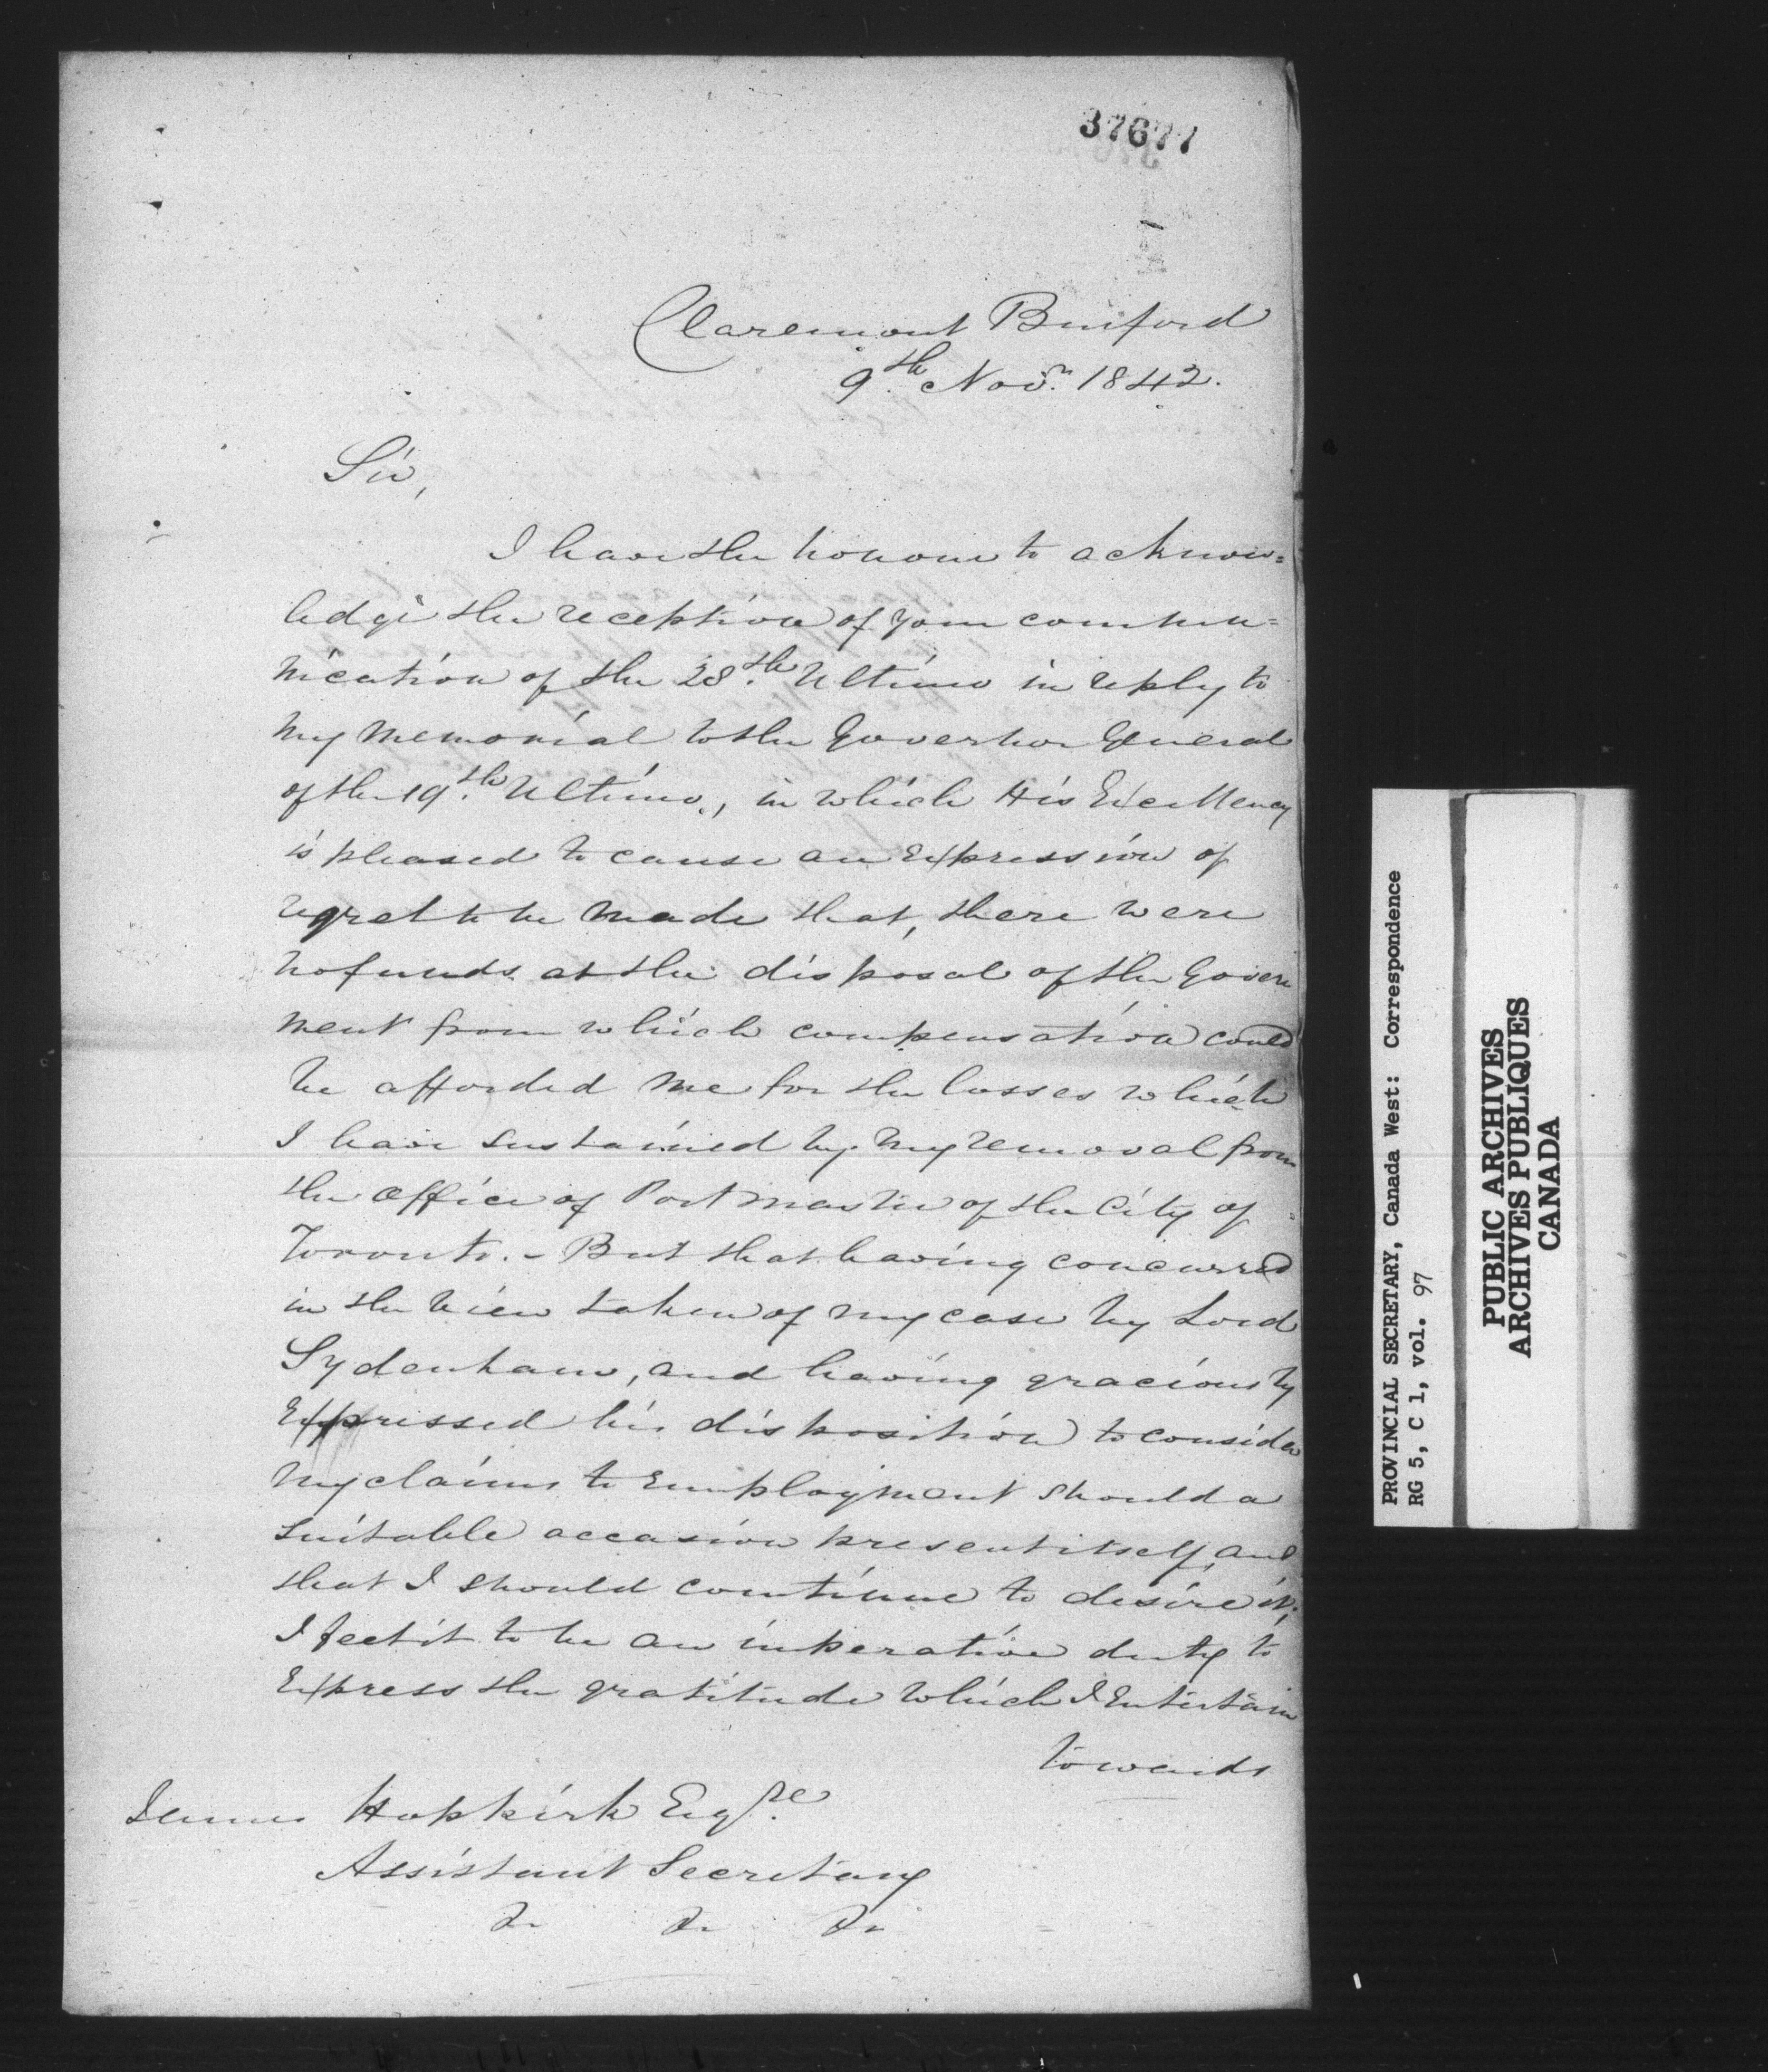 37677
Claremont Burford
9th Novr. 1842.
Sir,
I have the honour to acknow=
ledge the reception of your commu=
nication of the 28th Ultimo in reply to
my memorial to the Governor General
of the 19th Ultimo, in which His Excellency
is pleased to cause an expression of
regret to be made that, there were
no funds at the disposal of the Govern
ment from which compensation could
be afforded me for the losses which
I have sustained by my removal from
the office of Postmaster of the City of
Toronto. - But that having concurred
in the view taken of my case by Lord
Sydenham, and having graciously
expressed his disposition to consider
my claims to employment should a
suitable occasion present itself, and
that I should continue to desire it;
I feel it to be an imperative duty to
express the gratitude which I entertain
towards
James Hopkirk Esqre.
Assistant Secretary
&c &c &c
PROVINCIAL SECRETARY, Canada West: Correspondence
RG 5, C 1, vol. 97
PUBLIC ARCHIVES
ARCHIVES PUBLIQUES
CANADA